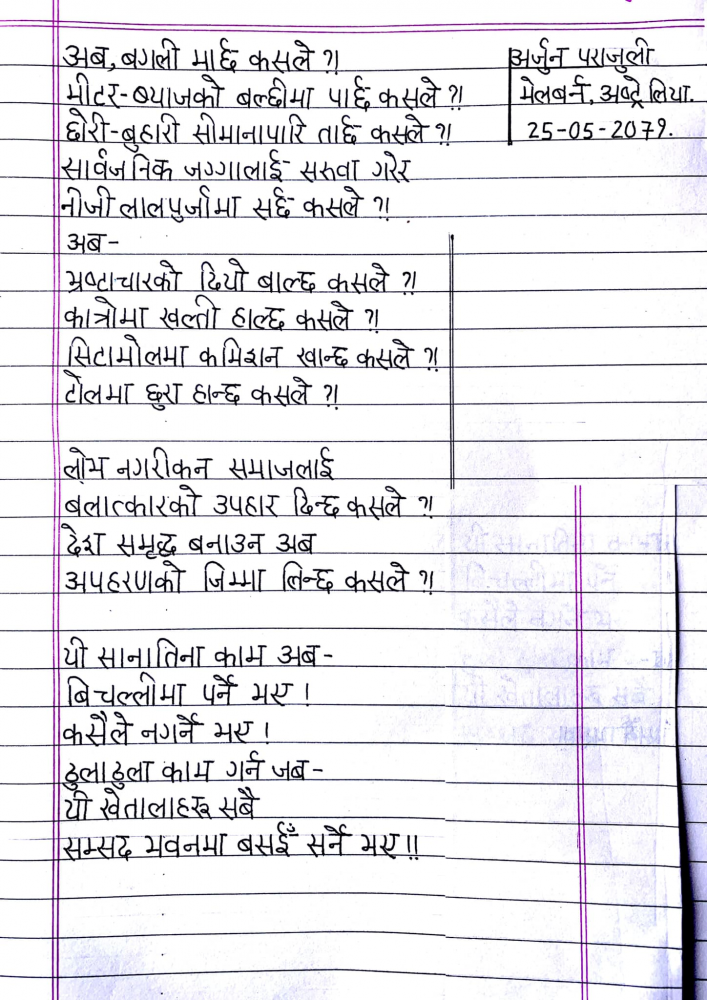 अब, बगली मार्छ कसले ?!
मीटर-ब्याजको बल्छीमा पार्छ कसले ?!
छोरी-बुहारी सीमानापारि तार्छ कसले ?!
सार्वजनिक जग्गालाई सरुवा गरेर
नीजी लालपुर्जामा सर्छ कसले ?!
अर्जुन पराजुली
मेलबर्न, अष्ट्रेलिया.
25-05-2079.
अब-
भ्रष्टाचारको दियो बाल्छ कसले ?!
कात्रोमा खल्ती हाल्छ कसले ?!
सिटामोलमा कमिशन खान्छ कसले ?!
टोलमा छुरा हान्छ कसले ?!
लोभ नगरीकन समाजलाई
बलात्कारको उपहार दिन्छ कसले ?!
देश समृद्ध बनाउन अब
अपहरणको जिम्मा लिन्छ कसले ?!
यी सानातिना काम अब-
बिचल्लीमा पर्ने भए !
कसैले नगर्ने भए !
ठुलाठुला काम गर्न जब-
यी खेतालाहरू सबै
सम्सद भवनमा बसाईँ सर्ने भए !!